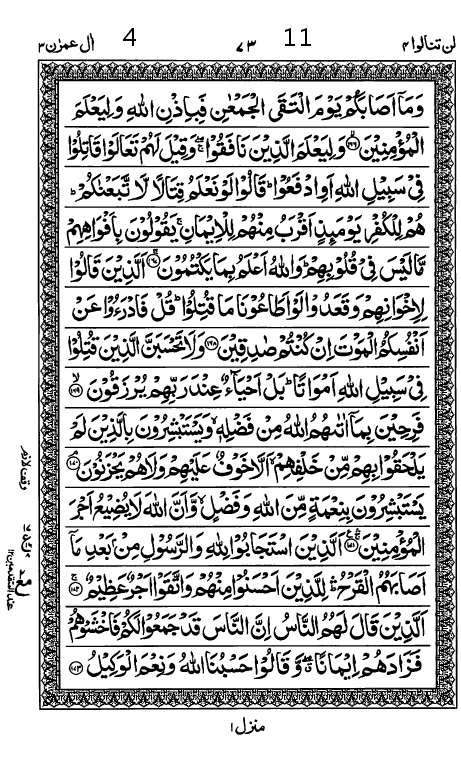 لن تنالوا ۴
11
۷۳
4
ال عمرٰن ۳
وَمَاۤ اَصَابَكُمْ يَوْمَ الْتَقَى الْجَمْعٰنِ فَبِاِذْنِ اللّٰهِ وَلِيَعْلَمَ
الْمُؤْمِنِيْنَۙ ﴿۱۶۶﴾ وَلِيَعْلَمَ الَّذِيْنَ نَافَقُوْاۖۚ وَقِيْلَ لَهُمْ تَعَالَوْا قَاتِلُوْا
فِىْ سَبِيْلِ اللّٰهِ اَوِادْفَعُوْاؕ قَالُوْا لَوْ نَعْلَمُ قِتَالًا لَّا تَّبَعْنٰكُمْؕ
هُمْ لِلْكُفْرِ يَوْمَىِٕذٍ اَقْرَبُ مِنْهُمْ لِلْاِيْمَانِۚ يَقُوْلُوْنَ بِاَفْوَاهِهِمْ
مَّا لَيْسَ فِىْ قُلُوْبِهِمْؕ وَاللّٰهُ اَعْلَمُ بِمَا يَكْتُمُوْنَۚ ﴿۱۶۷﴾ اَلَّذِيْنَ قَالُوْا
لِاِخْوَانِهِمْ وَقَعَدُوْا لَوْ اَطَاعُوْنَا مَا قُتِلُوْاؕ قُلْ فَادْرَءُوْا عَنْ
اَنْفُسِكُمُ الْمَوْتَ اِنْ كُنْتُمْ صٰدِقِيْنَ ﴿۱۶۸﴾ وَلَا تَحْسَبَنَّ الَّذِيْنَ قُتِلُوْا
فِىْ سَبِيْلِ اللّٰهِ اَمْوَاتًاؕ بَلْ اَحْيَآءٌ عِنْدَ رَبِّهِمْ يُرْزَقُوْنَۙ ﴿۱۶۹﴾
فَرِحِيْنَ بِمَاۤ اٰتٰىهُمُ اللّٰهُ مِنْ فَضْلِهٖۙ وَيَسْتَبْشِرُوْنَ بِالَّذِيْنَ لَمْ
يَلْحَقُوْا بِهِمْ مِّنْ خَلْفِهِمْۙ اَلَّا خَوْفٌ عَلَيْهِمْ وَلَا هُمْ يَحْزَنُوْنَۘ ﴿۱۷۰﴾
يَسْتَبْشِرُوْنَ بِنِعْمَةٍ مِّنَ اللّٰهِ وَفَضْلٍۙ وَّاَنَّ اللّٰهَ لَا يُضِيْعُ اَجْرَ
الْمُؤْمِنِيْنَ ۛۚ ﴿۱۷۱﴾ اَلَّذِيْنَ اسْتَجَابُوْا لِلّٰهِ وَالرَّسُوْلِ مِنْۢ بَعْدِ مَاۤ
اَصَابَهُمُ الْقَرْحُ ۛؕ لِلَّذِيْنَ اَحْسَنُوْا مِنْهُمْ وَاتَّقَوْا اَجْرٌ عَظِيْمٌۚ ﴿۱۷۲﴾
اَلَّذِيْنَ قَالَ لَهُمُ النَّاسُ اِنَّ النَّاسَ قَدْ جَمَعُوْا لَكُمْ فَاخْشَوْهُمْ
فَزَادَهُمْ اِيْمَانًاۖ وَّقَالُوْا حَسْبُنَا اللّٰهُ وَنِعْمَ الْوَكِيْلُ ﴿۱۷۳﴾
وقف لازم
منزل ۱